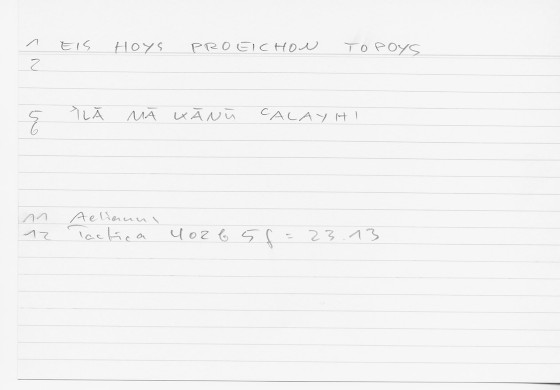 1 EIS HOYS PROEICHON TOPOYS
2
5 ʾILĀ MĀ KĀNŪ ʿALAYHI
6
11 Aelianus
12 Tactica 402 b 5 f = 23.13